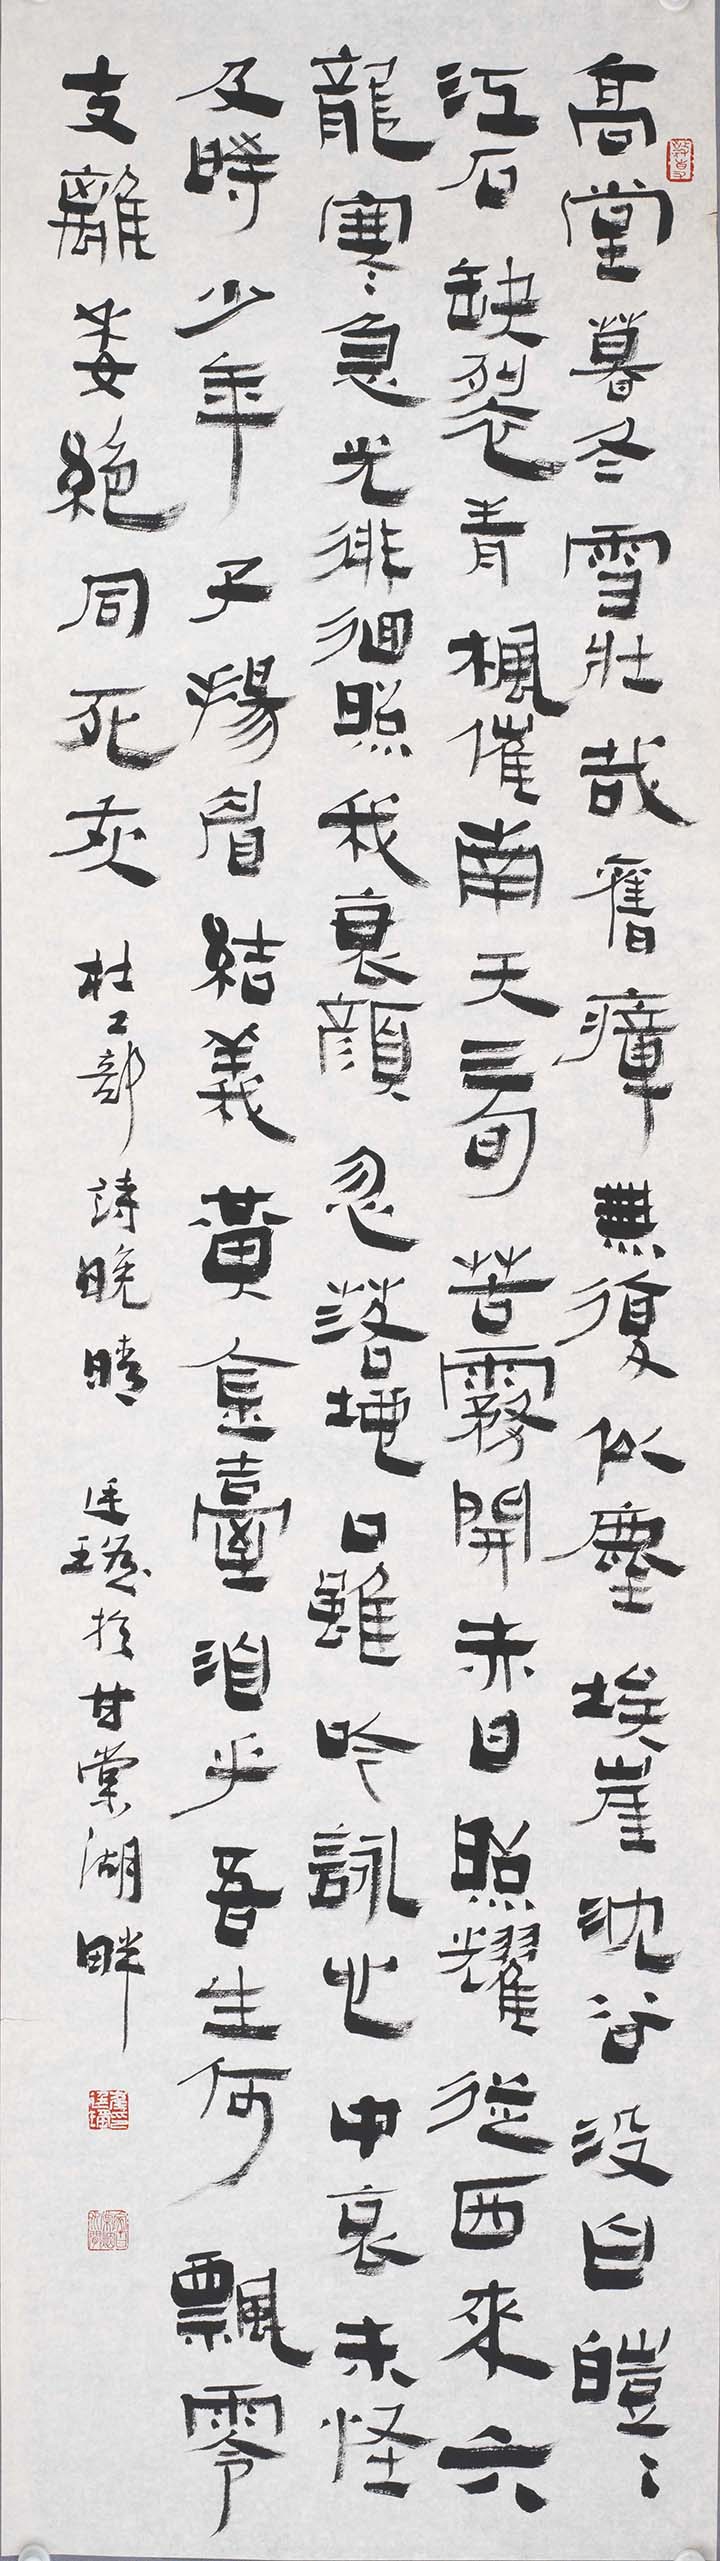 高堂暮冬雪壯哉舊瘴無復似塵埃崖沈谷沒白皚〻
江石缺裂青楓催南天三旬苦霧開赤日照耀從西來六
龍寒〻急光徘徊照我衰顏忽落地口雖吟詠心中哀未怪
及時少年子揚眉結義黃金臺洎乎吾生何飄零
支離委絕同死灰 杜工部詩晚晴 於甘棠湖畔